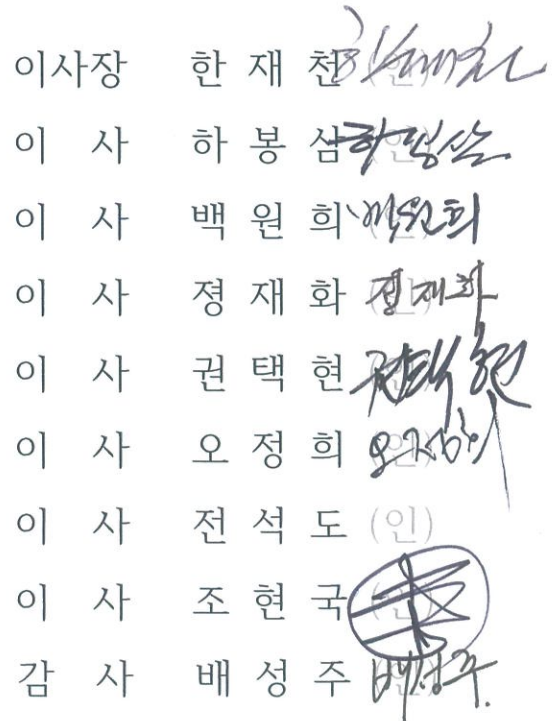 이사장 한재천 (인) 한재천
이 사 하봉삼 (인) 하봉삼
이 사 백원희 (인) 백원희
이 사 졍재화 (인) 졍재화
이 사 권택현 (인) 권택현
이 사 오정희 (인) 오정희
이 사 전석도 (인)
이 사 조현국 (인)
감 사 배성주 (인) 배성주